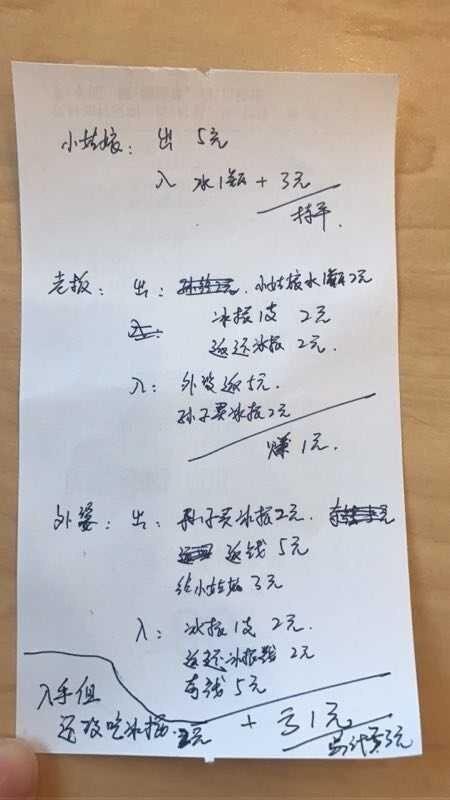 小姑娘：出 5元
入 水1瓶 + 3元
持平.
老板：出：小姑娘水1瓶2元
冰棍1支 2元
返还冰棍 2元.
入：外婆返5元.
孙子买冰棍2元
赚1元.
外婆：出：孙子买冰棍2元.
返钱 5元
给小姑娘 3元
入：冰棍1支 2元.
返还冰棍 2元
有钱 5元
入手但
还没吃冰棍. 2元
+ 亏1元